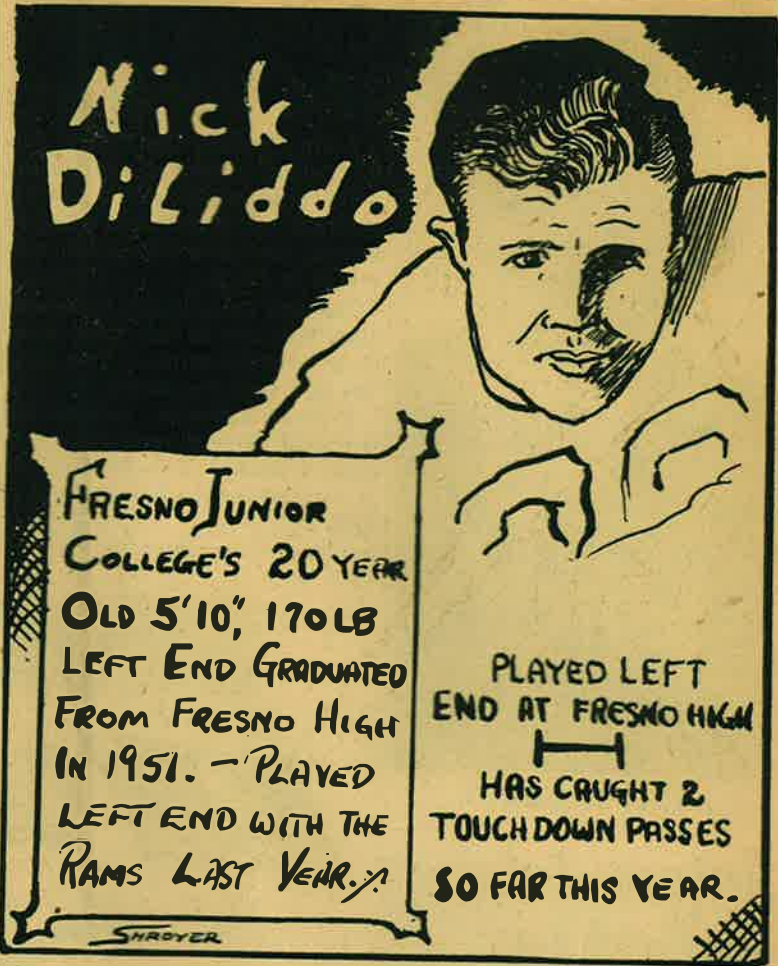 Nick
DiLiddo
FRESNO JUNIOR
COLLEGE'S 20 YEAR
OLD 5'10", 170 LB
LEFT END GRADUATED
FROM FRESNO HIGH
IN 1951. – PLAYED
LEFT END WITH THE
RAMS LAST YEAR.
PLAYED LEFT
END AT FRESNO HIGH
HAS CAUGHT 2
TOUCHDOWN PASSES
SO FAR THIS YEAR.
SHROYER